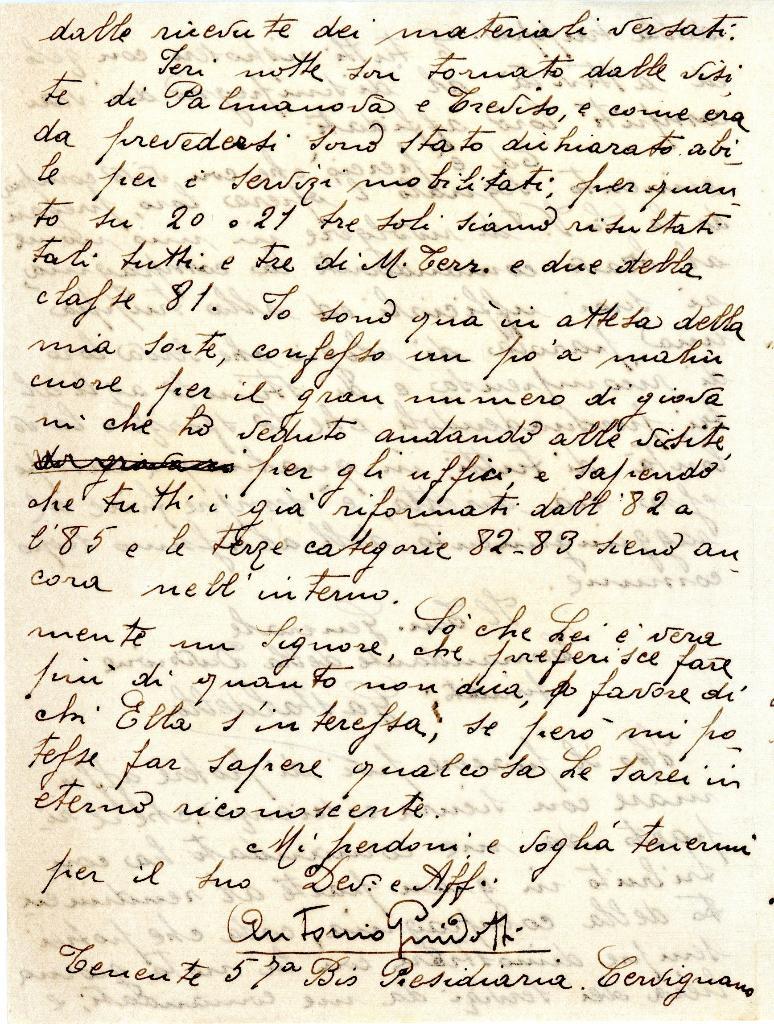 dalle ricevute dei materiali versati.
Ieri notte son tornato dalle visi
te di Palmanova e Treviso, e come era
da prevedersi sono stato dichiarato abi-
le per i servizi mobilitati; per quan-
to su 20 o 21 tre soli siamo risultati
tali tutti e tre di M. Terr. e due della
classe 81. Io sono quà in attesa della
mia sorte, confesso un po' a malin
cuore per il gran numero di giova
ni che ho veduto andando alle visite,
per gli uffici, e sapendo
che tutti i già riformati dall'82 a
l'85 e le terze categorie 82-83 sieno an
cora nell'interno.
So che Lei è vera
mente un Signore, che preferisce fare
più di quanto non dica, a favore di
chi Ella s'interessa, se però mi po
tesse far sapere qualcosa Le sarei in
eterno riconoscente.
Mi perdoni e voglia tenermi
per il suo Dev: e Aff:
Antonio Guidotti
Tenente 57a Bis Presidiaria. Cervignano